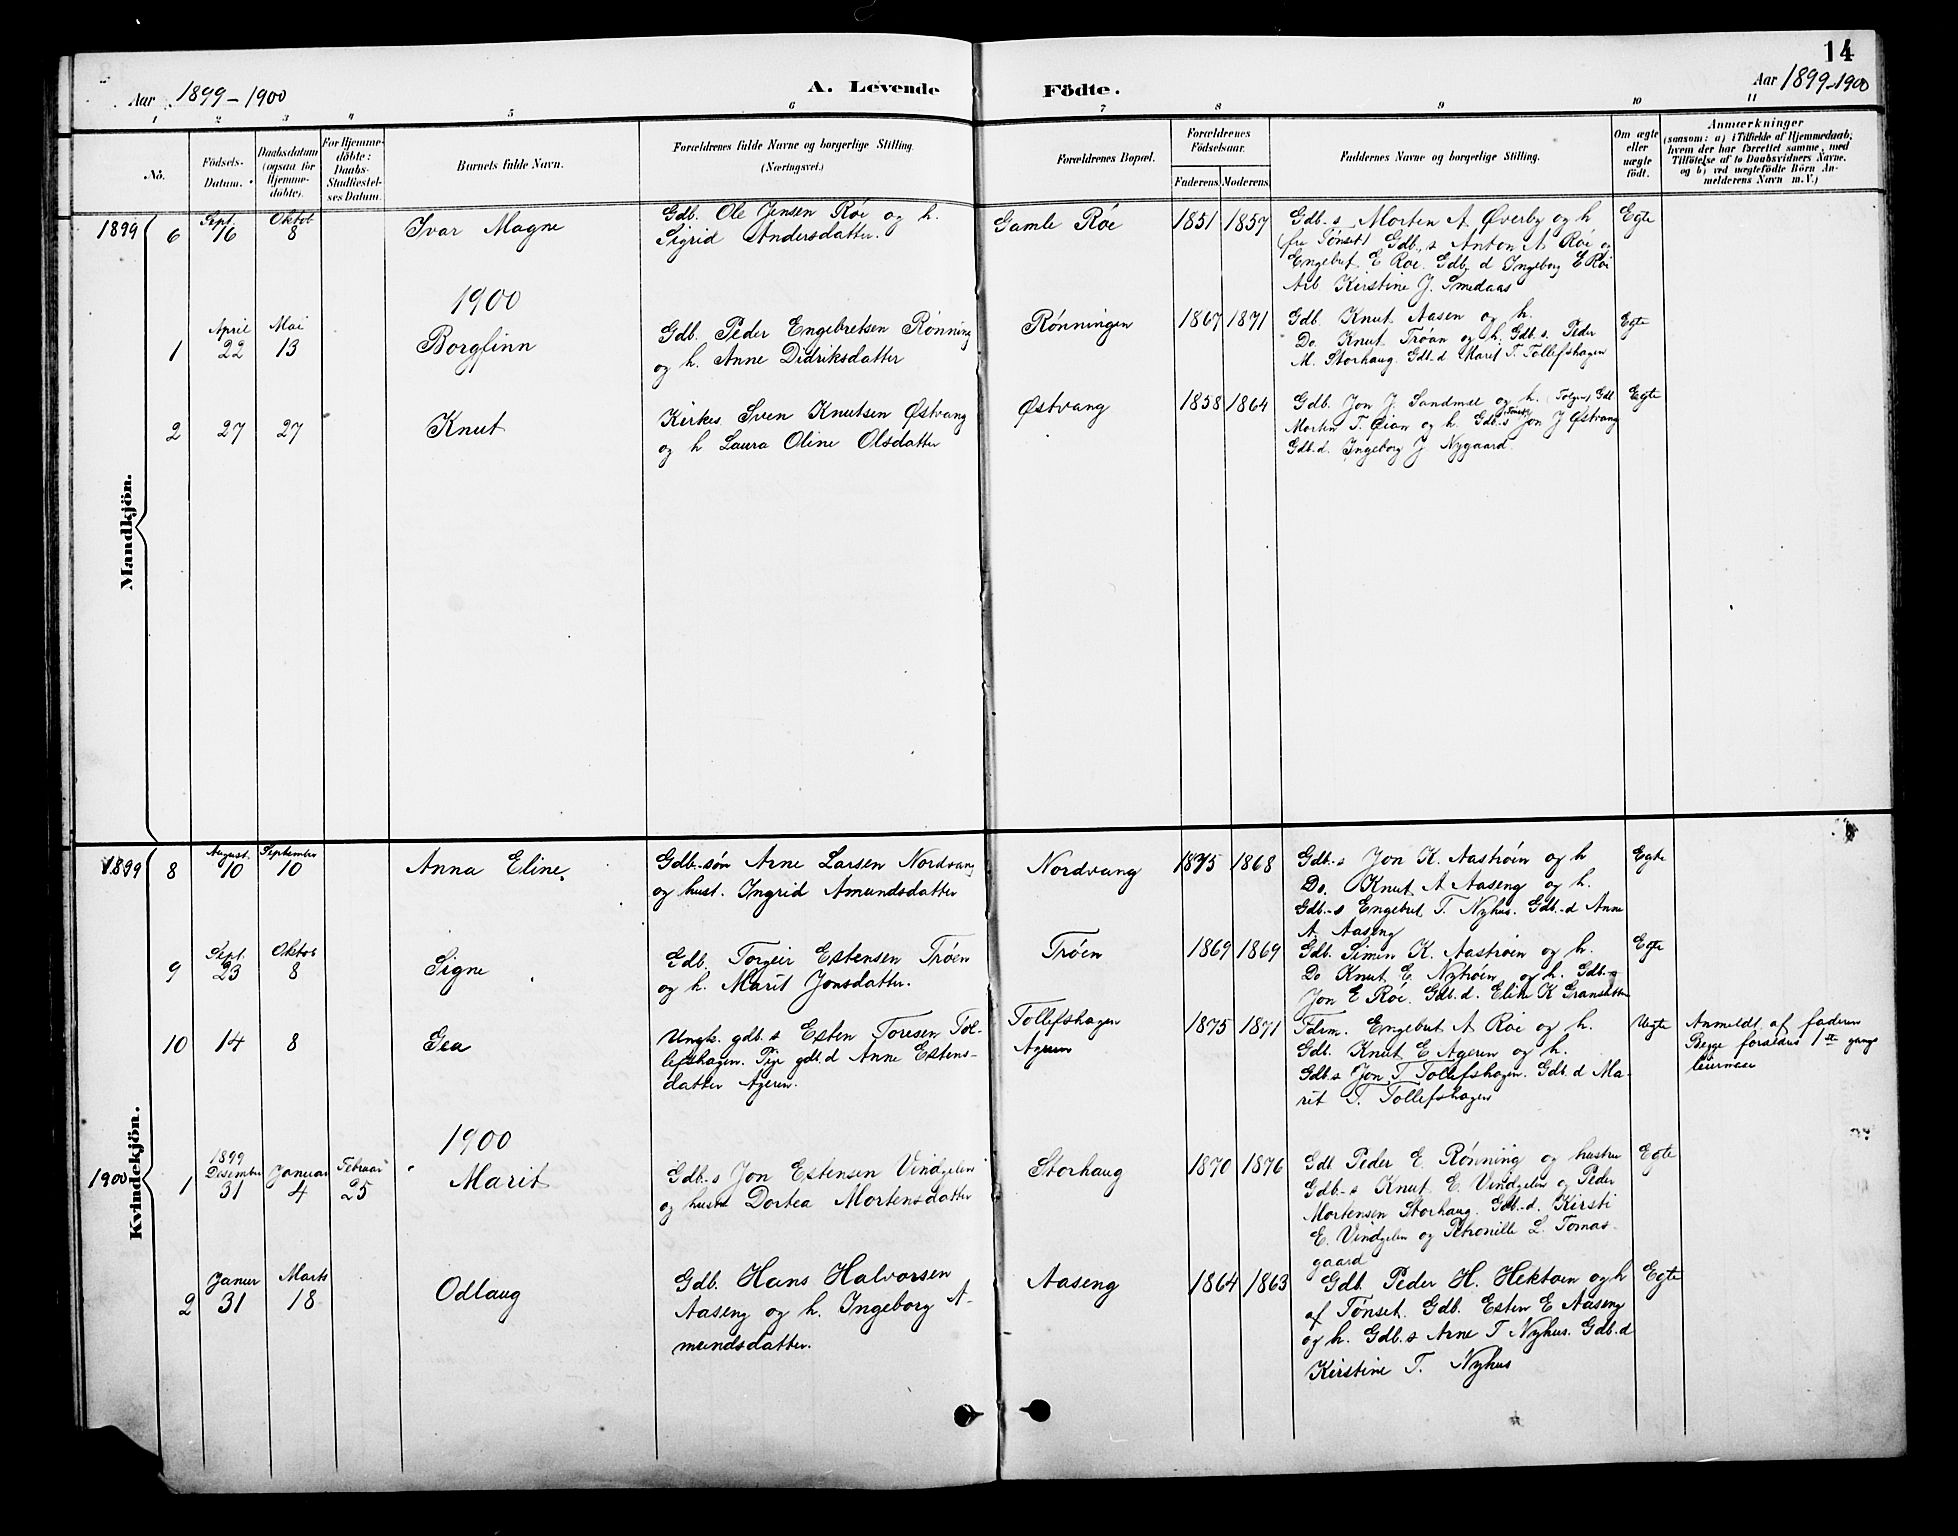 14
Aar 1899-1900
A. Levende Födte.
Aar 1899-1900
1 2 3 4 5 6 7 8 9 10 11
No.
Födsels-
Datum.
Daabsdatum
(ogsaa for
Hjemme-
döbte).
For Hjemme-
döbte:
Daabs-
Stadfæstel-
ses Datum.
Barnets fulde Navn.
Forældrenes fulde Navne og borgerlige Stilling.
(Næringsvei.)
Forældrenes Bopæl.
Forældrenes
Födselsaar.
Faderens Moderens
Faddernes Navne og borgerlige Stilling.
Om ægte
eller
uægte
födt.
Anmærkninger
(saasom: a) i Tilfælde af Hjemmedaab;
hvem der har forrettet samme, med
Tilföielse af to Daabsvidners Navne.
og b) ved uægtefödte Börn An-
melderens Navn m. V.)
Mandkjön.
1899
6
Sept.
16
Oktob
8
Ivar Magne
Gdb. Ole Jensen Röe og h.
Sigrid Andersdatter.
Gamle Röe
1851 1857
Gdb-s Morten A Øverby og h
(fra Tønset) Gdb.s Anton A Röe og
Engebret E Röe. Gdb d Ingeborg E Röe
Arb Kirstine J. Smedaas
Egte
1900
1
April
22
Mai
13
Borgfinn
Gdb. Peder Engebretsen Rønning
og h. Anne Didriksdatter
Rønningen
1867 1871
Gdb. Knut Aasen og h.
Do. Knut Tröan og h. Gdb.s. Peder
M. Storhaug. Gdb-d Marit T. Tollefshagen
Egte
2
27
27
Knut
Kirkes. Sven Knutsen Østvang
og h Laura Oline Olsdatter
Østvang
1858 1864
Gdb. Jon J. Sandmel og h. (Tolgen) Gdb
Morten T. Øian og h. Gdb-s Jon J Østvang
Gdb.d. Ingeborg J Nygaard.
Egte
Kvindekjön.
1899
8
August.
10
September
10
Anna Eline.
Gdb.-søn Arne Larsen Nordvang
og hust. Ingrid Amundsdatter
Nordvang
1875 1868
Gdb-s Jon K. Aaströen og h
Do. Knut A Aaseng og h.
Gdb-s Engebret T. Nyhus. Gdb.-d Anne
A. Aaseng
Egte
9
Sept.
23
Oktob
8
Signe
Gdb. Torgeir Estensen Tröen
og h. Marit Jonsdatter.
Tröen
1869 1869
Gdb. Simen K. Aaströen og h.
Do Knut E. Nytröen og h. Gdb-s
Jon E Röe. Gdb.d. Eline K Gransletten
Egte
10
14
8
Gea
Ungk. gdb.s Esten Toresen Tol-
lefshagen. Pige gdb.d Anne Estens-
datter Ageren.
Tollefshagen
Ageren
1875 1871
Fdrm. Engebret A Röe og h.
Gdb. Knut E Ageren og h.
Gdb.s Jon T Tollefshagen. Gdb.d Ma-
rit T. Tollefshagen
Uegte
Anmeldt af faderen
Begge forældres 1ste gangs
leiermaal
1900
1900
1
1899
Desember
31
Januar
4
Februar
25
Marit
Gdb-s Jon Estensen Vindgelen
og hustr Dortea Mortensdatter
Storhaug
1870 1876
Gdb Peder E. Rønning og hustru
Gdb-s Knut E. Vindgelen og Peder
Mortensen Storhaug. Gdb-d. Kirsti
E. Vindgelen og Petronille L. Tomas-
gaard
Egte
2
Januar
31
Marts
18
Odlaug
Gdb. Hans Halvorsen
Aaseng og h. Ingeborg A-
mundsdatter.
Aaseng
1864 1863
Gdb. Peder H. Hektoen og h
af Tønset. Gdb. Esten E Aaseng
og h. Gdb.s Arne T Nyhus. Gdb.d
Kirstine T. Nyhus
Egte